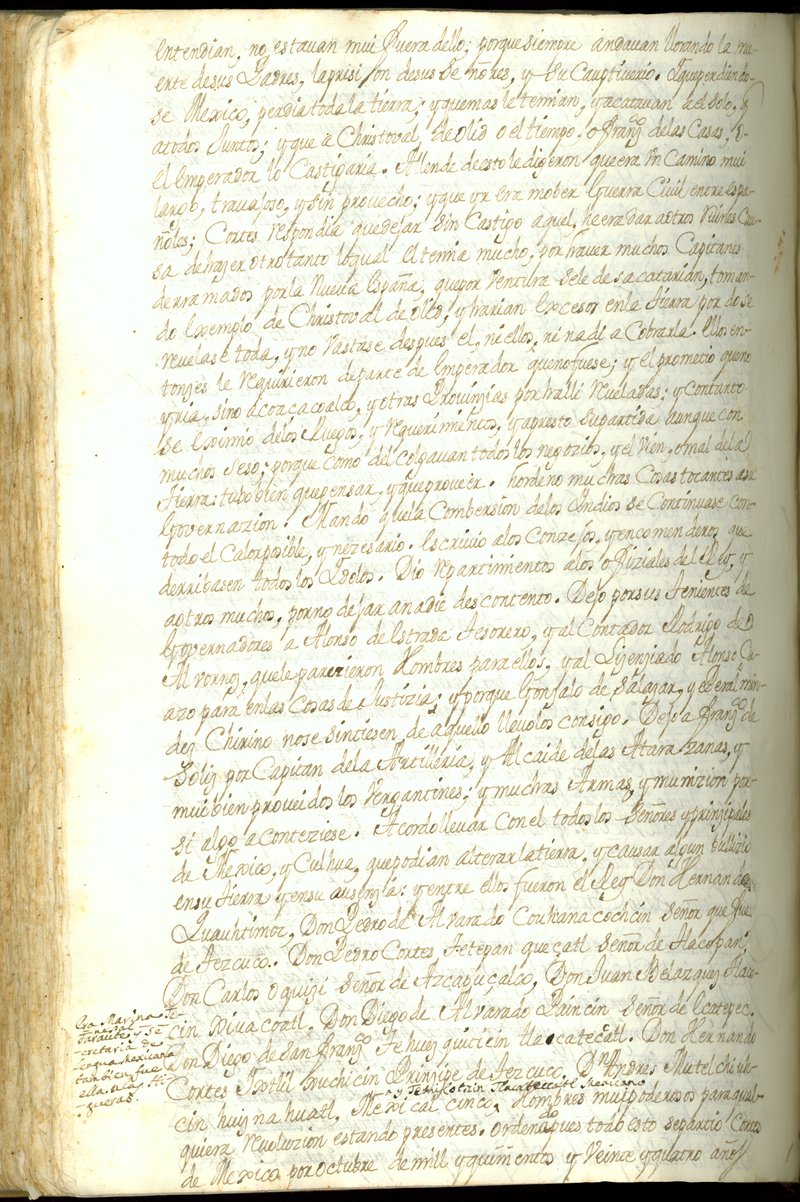 entendian, no estavan mui fuera dello; porque siempre andavan llorando la mu-
erte desus Padres, laprisi on desus Señores, y su Cauptiverio. Yqueperdiendo-
se Mexico, perdia toda la tierra; yquemas le temian, yacatavan a el solo, q
atodos Juntos; yque a Christoval de Olid o el tiempo. o Franco delas Casas, o
el Emperador lo Castigaria. Allende decsto le digeron queera Vn Camino mui
largo, travajoso, y sin provecho; yque yr era mober Guerra Civil entre espa-
ñoles; Cortes respondia quedejar sin Castigo aquel, heera dar aotros Ruines Cau-
sa dehazer otro tanto loqual el temia mucho, por haver muchos Capitanes
derramados porla Nueva España, quepor Ventura sele desacatarian, toman-
do Exemplo de Christoval de Olid, y harian excesos enla tierra por do se
revelase toda, y no Vastase despues el, ni ellos, ni nadi a Cobrarla. Ellos en-
tonzes le requirieron departe de Emperador quenofuese; y el prometio queno
yria, sino acoazacoalco, y otras Provinzias por halli reveladas; y Contanto
se eximio delos Ruegos, y requerimientos, yapresto su partida aunque con
mucho seso; porque como del Colgavan todos los negozios, y el Vien, o mal dela
tierra: tubo bien quepensar, yqueproveer. hordeno muchas Cosas tocantes asu
Governazion. Mando quela Combersion delos Indios se Continuase con
todo el Calor posible, y nezesario. Escrivio alos Conzejos, y encomenderos que
derribasen todos los Ydolos. Dio repartimientos alos ofiziales del Rey, y
aotros muchos, porno dejar anadie descontento. Dejo por sus tenientes de
Governadores a Alonso de Estrada tesorero, y al Contador Rodrigo de
Alvornoz, quele parezieron Hombres para ellos, y al Lizenziado Alonso Zu-
azo para enlas Cosas de Justizia; y porque Gonzalo de Salazar, y Peralmin-
dez Chirino nose sintiesen de aquello llevolos consigo. Dejo a Franco de
Soliz por Capitan dela Artilleria, y Alcaide delas Atarazanas, y
mui bien proveidos los Vergantines; y muchas Armas, y munizion por
si algo aconteziese. Acordo llevar con el todos los Señores y prinzipales
de Mexico, y Culhua, quepodian alterar latierra, y causar algun bullizio
ensu tierra yensu ausenzia: y entre ellos fueron el Rey Don Hernando
Quauhtimoz, Don Pedro de Alvarado Couhanacochcin Señor que fue
de Tezcuco. Don Pedro Cortes, Tetepanquezatl Señor de Tlacopan,
Don Carlos Oquizi Señor de Azcapuzalco, Don Juan Velazquez Tlaco-
cin Xivacoatl. Don Diego de Alvarado Paincin Señor de Ecatepec.
Don Diego de San Franco Tehuezquiticin tlacatecatl. Don Hernando
Cortes Yxtlilxuchicin Prinzipe de Tezcuco. Dn Andres Mutelchiuh-
y Temilotzin Tlacateccatl Mexicano
cin huiznahuatl, Mexicalcinco, Hombres mui poderosos para qual-
quiera revoluzion estando presentes. Ordenado pues todo esto separtio Cortes
de Mexico por octubre de mill y quinientos y Veinte y quatro años
Era Marina Te-
nepal
Faraute, y se-
cretaria de
lengua mexicana
tambien fue
ella a las Hi-
gueras.